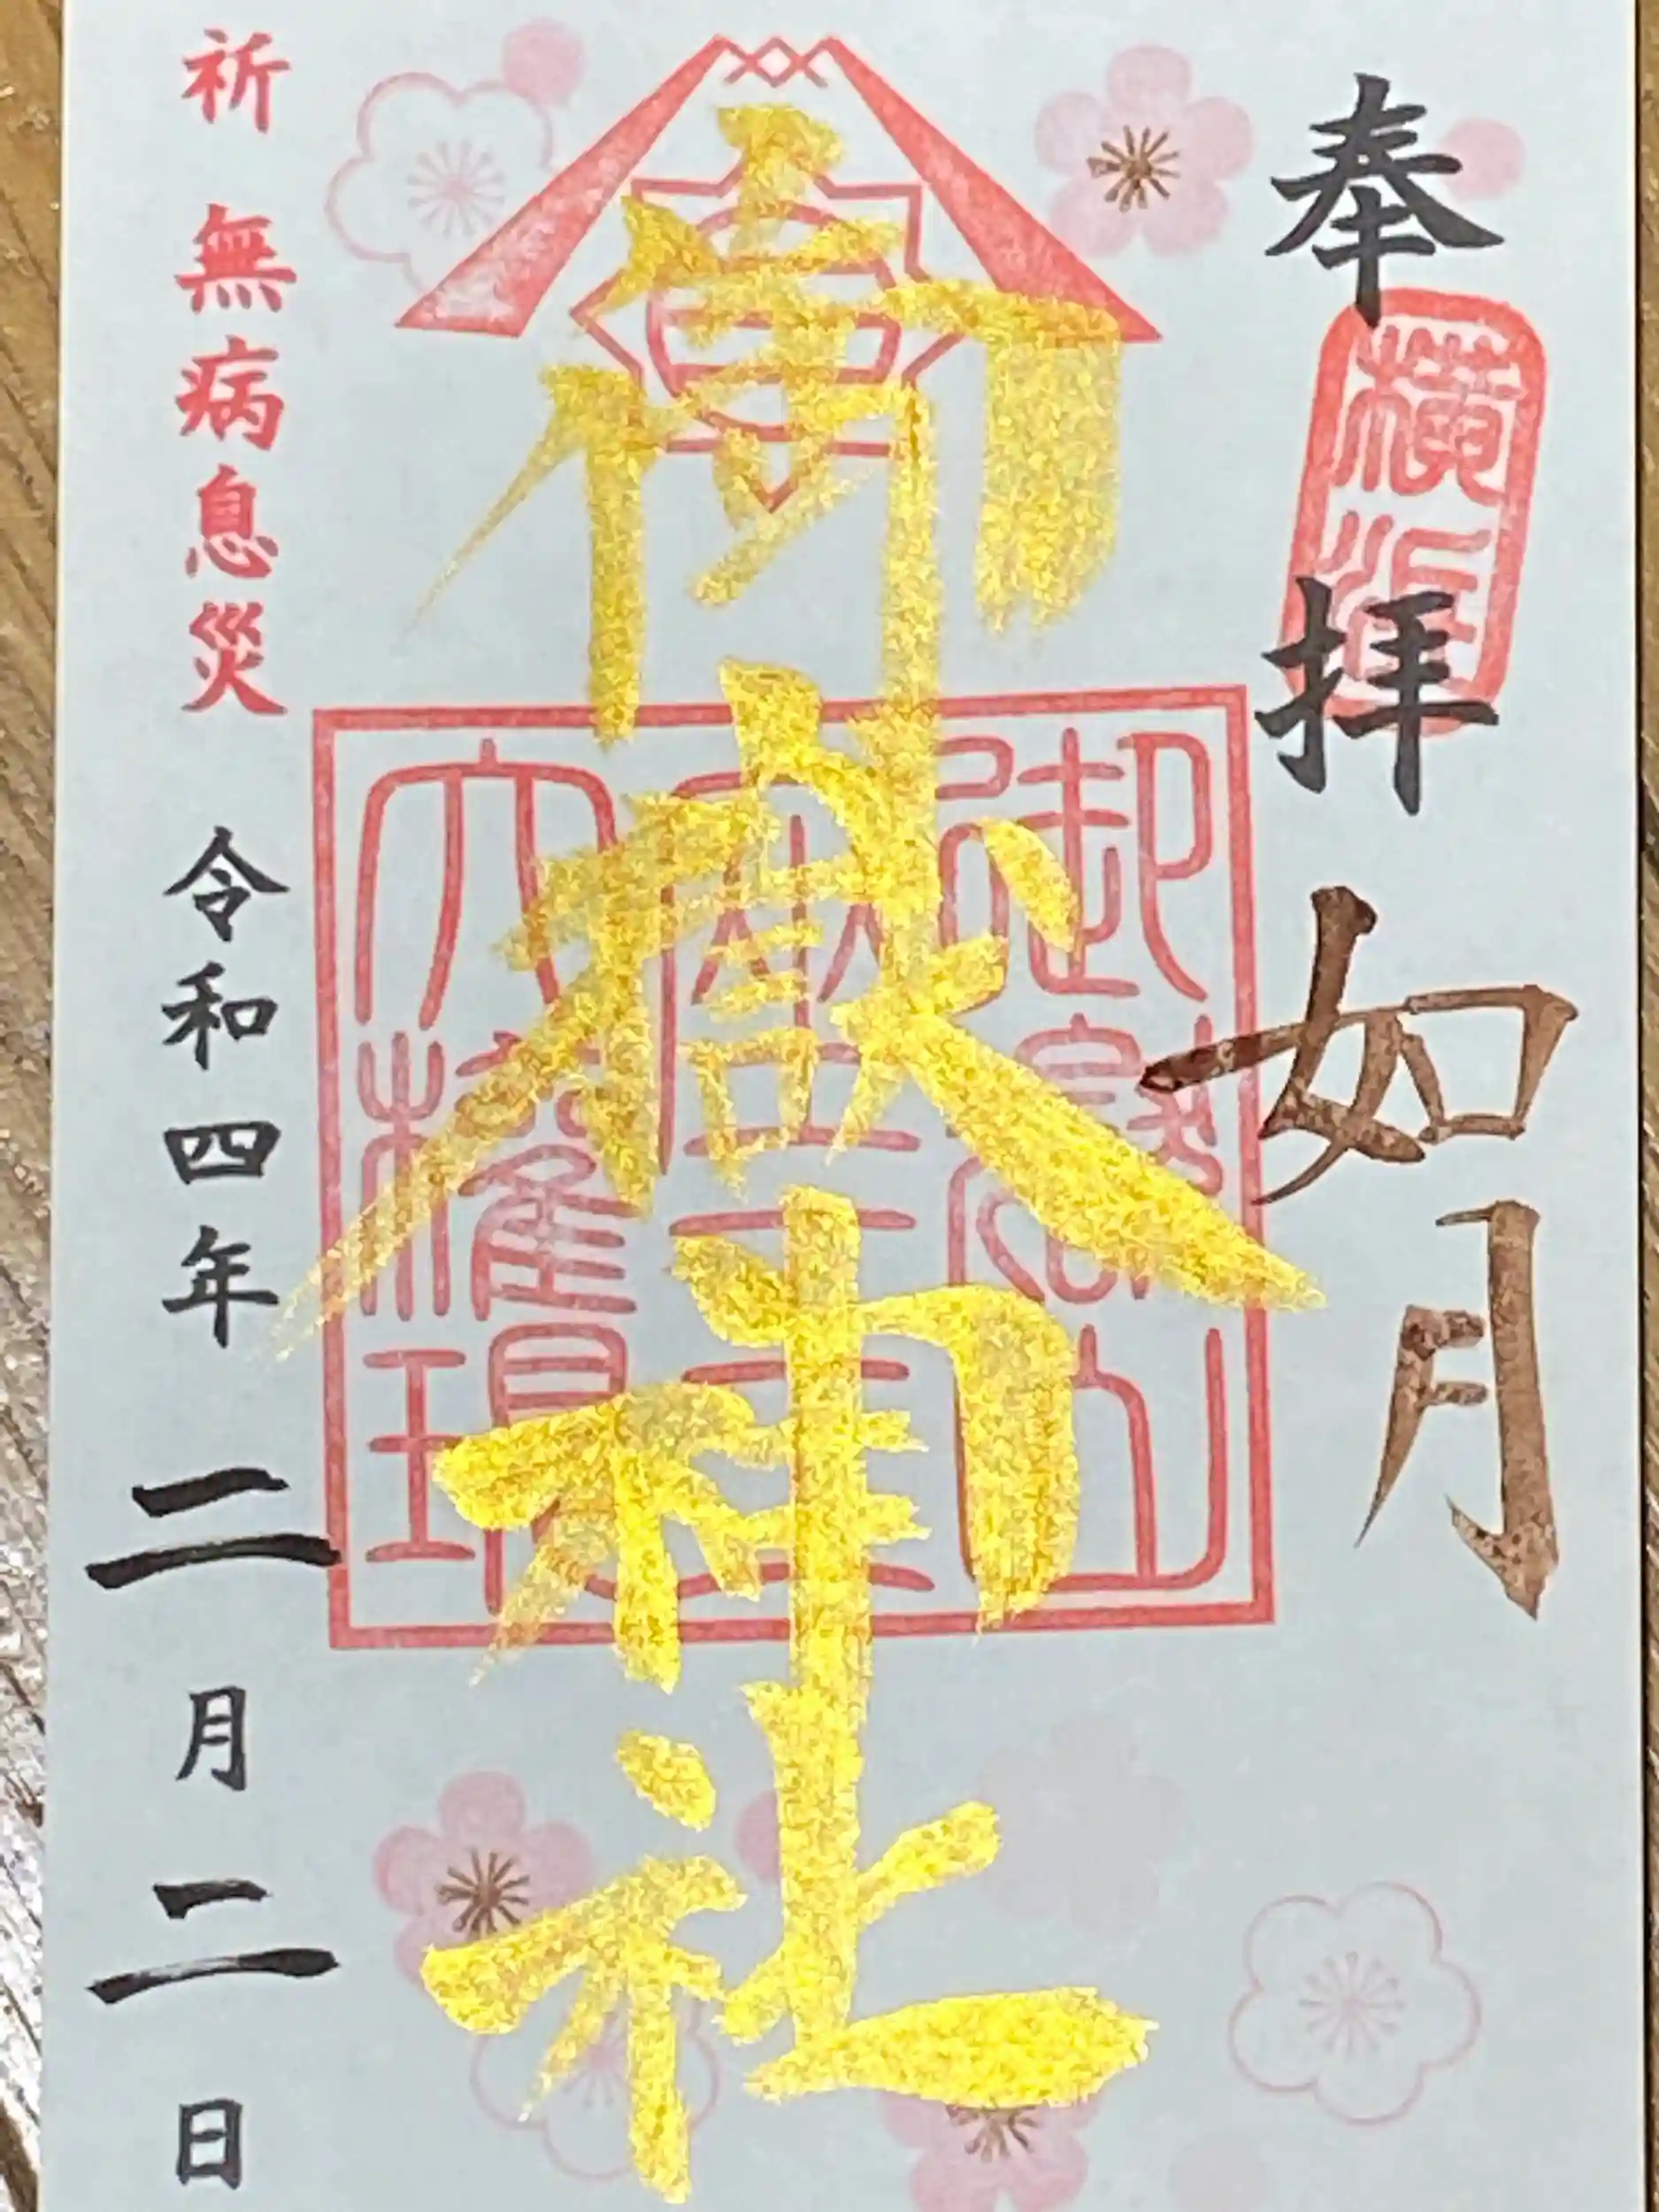 奉拝 如月
横浜
御嶽神社
御嶽山
蔵王
大権現
祈 無病息災 令和四年 二月 二日